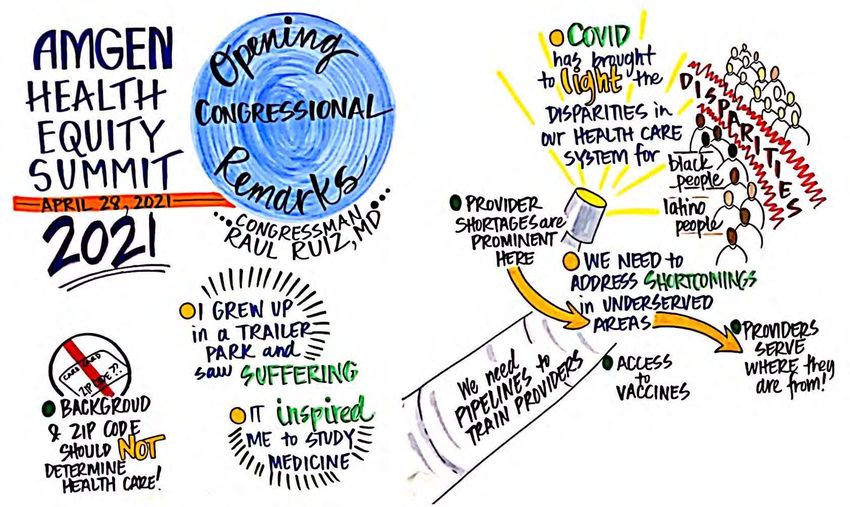 AMGEN
HEALTH
EQUITY
SUMMIT
APRIL 28, 2021
2021
Opening
CONGRESSIONAL
Remarks
...CONGRESSMAN...
RAUL RUIZ, MD
I GREW UP
in a TRAILER
PARK and
saw SUFFERING
IT inspired
ME to STUDY
MEDICINE
CARE CARD
ZIP CODE?
BACKGROUD
& ZIP CODE
SHOULD NOT
DETERMINE
HEALTH CARE!
COVID
has brought
to light the
DISPARITIES in
our HEALTH CARE
SYSTEM for
black
people
latino
people
DISPARITIES
PROVIDER
SHORTAGES are
PROMINENT
HERE
WE NEED to
ADDRESS SHORTCOMINGS
in UNDERSERVED
AREAS
PROVIDERS
SERVE
WHERE they
are from!
ACCESS
to
VACCINES
We need
PIPELINES to
TRAIN PROVIDERS